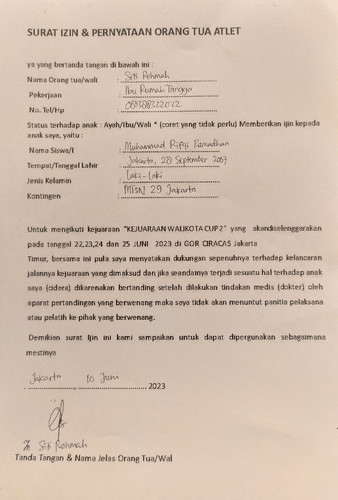 SURAT IZIN & PERNYATAAN ORANG TUA ATLET
ya yang bertanda tangan di bawah ini :
Nama Orang tua/wali : Siti Rohmah
Pekerjaan : Ibu Rumah Tangga
No. Tel/Hp : 081388322022
Status terhadap anak : Ayah/Ibu/Wali * (coret yang tidak perlu) Memberikan ijin kepada
anak saya, yaitu :
Nama Siswa/I : Muhammad Rifqi Ramadhan
Tempat/Tanggal Lahir : Jakarta, 28 September 2007
Jenis Kelamin : Laki-laki
Kontingen : MTSN 29 Jakarta
Untuk mengikuti kejuaraan "KEJUARAAN WALIKOTA CUP 2" yang akandiselenggarakan
pada tanggal 22,23,24 dan 25 JUNI 2023 di GOR CIRACAS Jakarta
Timur, bersama ini pula saya menyatakan dukungan sepenuhnya terhadap kelancaran
jalannya kejuaraan yang dimaksud dan jika seandainya terjadi sesuatu hal terhadap anak
saya (cidera) dikarenakan bertanding setelah dilakukan tindakan medis (dokter) oleh
aparat pertandingan yang berwenang maka saya tidak akan menuntut panitia pelaksana
atau pelatih ke pihak yang berwenang.
Demikian surat Ijin ini kami sampaikan untuk dapat dipergunakan sebagaimana
mestinya
Jakarta, 10 Juni 2023
Siti Rohmah
Tanda Tangan & Nama Jelas Orang Tua/Wal